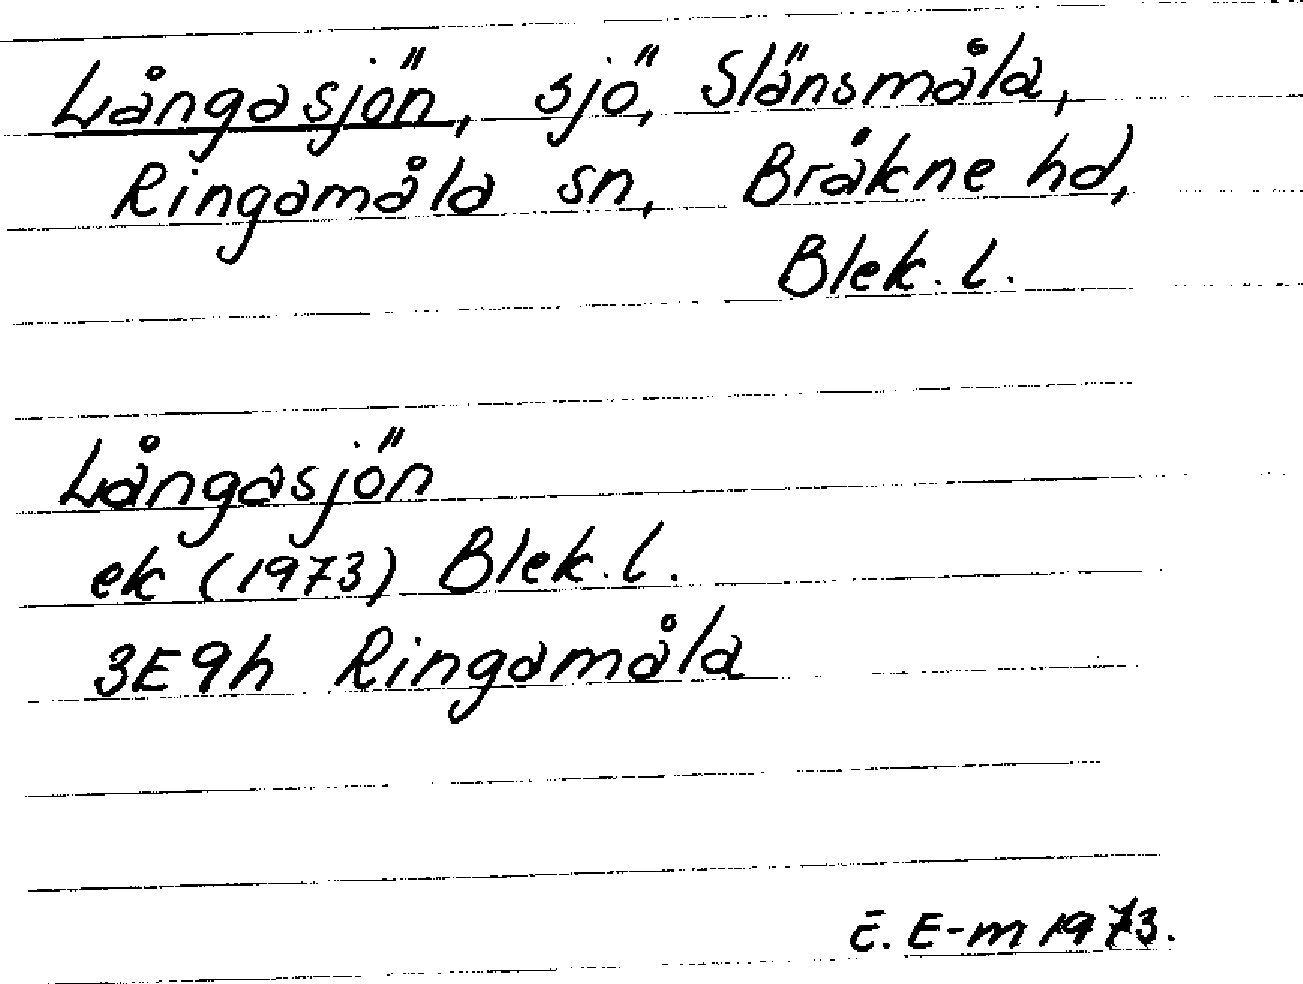 Långasjön, sjö, Slänsmåla,
Ringamåla sn, Bräkne hd,
Blek. l.
Långasjön
ek (1973) Blek. l.
3E9h Ringamåla
E. E-m 1973.